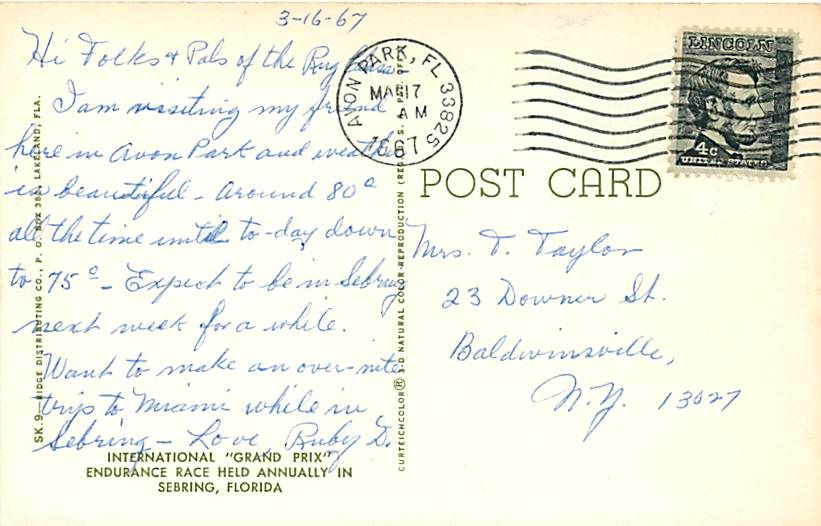 3-16-67
Hi Folks & Pals of the Rug Class -
I am visiting my friend
here in Avon Park and weather
is beautiful - around 80°
all the time until to-day down
to 75° - Expect to be in Sebring
next week for a while.
Want to make an over-nite
trip to Miami while in
Sebring - Love, Ruby D.
INTERNATIONAL "GRAND PRIX"
ENDURANCE RACE HELD ANNUALLY IN
SEBRING, FLORIDA
SK.9—RIDGE DISTRIBUTING CO., P. O. BOX 38, LAKELAND, FLA.
CURTEICHCOLOR® 3-D NATURAL COLOR REPRODUCTION (REG. U. S. A. PAT. OFF.)
AVON PARK, FL 33825
MAR 17
AM
1967
LINCOLN
4c
UNITED STATES
POST CARD
Mrs. T. Taylor
23 Downer St.
Baldwinsville,
N.Y. 13027